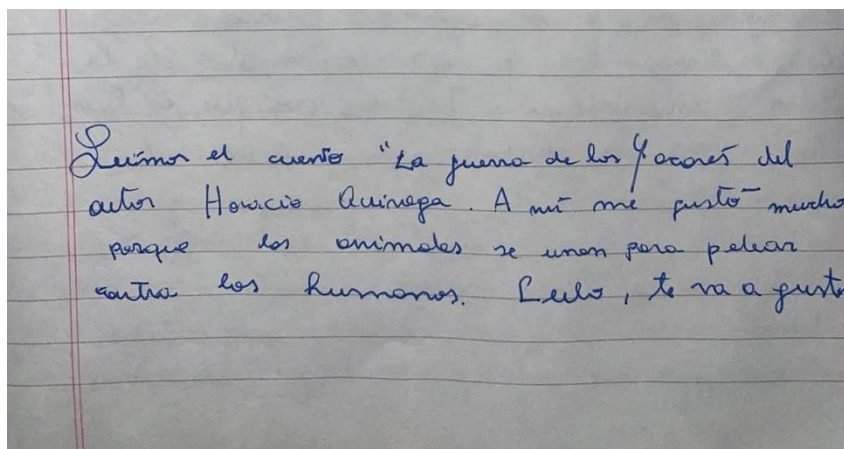 Leímos el cuento "La guerra de los Yacarés del
autor Horacio Quiroga. A mí me gustó mucho
porque los animales se unen para pelear
contra los humanos. Leelo, te va a gust